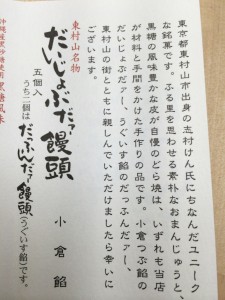 東京都東村山市出身の志村けん氏にちなんだユニーク
な銘菓です。ふる里を思わせる素朴なおまんじゅうと、
黒糖の風味豊かな皮が自慢のどら焼は、いずれも当店
が材料と手間をかけた手作りの品です。小倉つぶ餡の
だいじょぶだァー、うぐいす餡のだっふんだァー、
東村山の街とともに親しんでいただけましたら幸いに
ございます。
東村山名物
だいじょぶだァ饅頭
小倉餡
五個入
うち二個は だっふんだァ饅頭(うぐいす餡)です。
沖縄産黒砂糖使用 黒糖風味